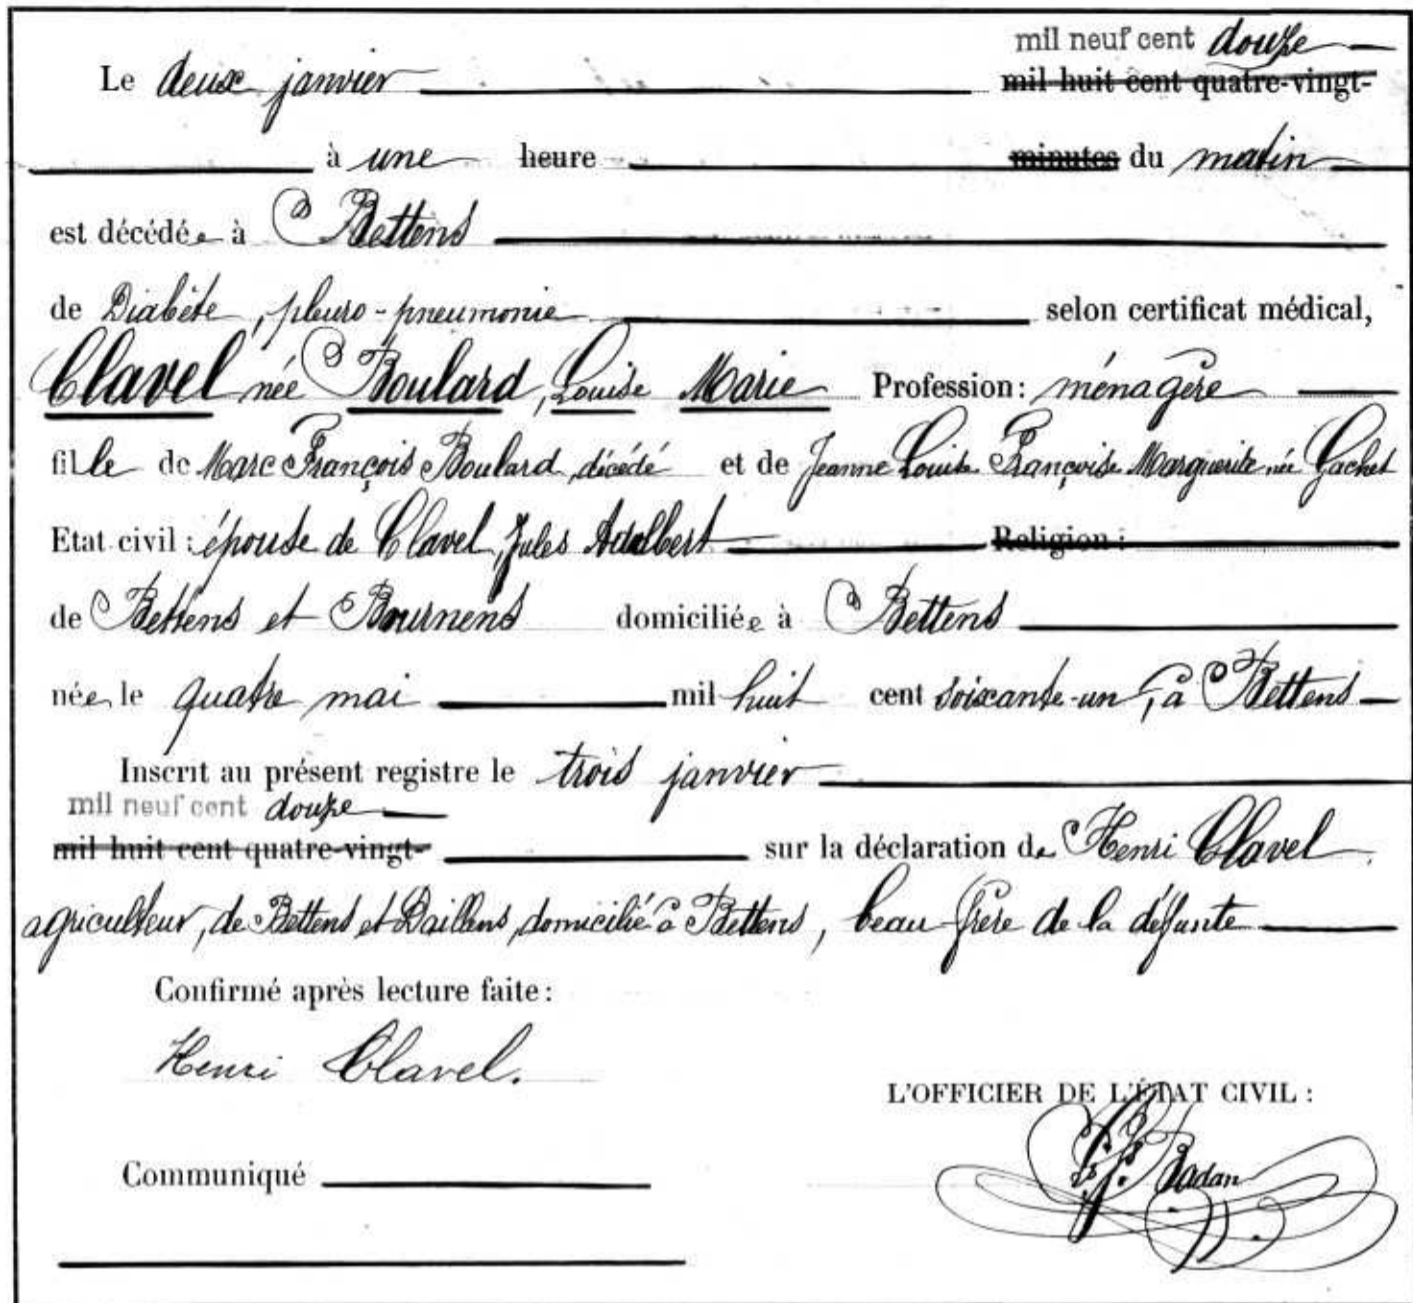 mil neuf cent douze
Le deux janvier mil huit cent quatre-vingt-
à une heure minutes du matin
est décédée à Bettens
de Diabète, pleuro-pneumonie selon certificat médical,
Clavel née Boulard, Louise Marie Profession: ménagère
fille de Marc François Boulard, décédé et de Jeanne Louise Françoise Marguerite née Gachet
Etat civil: épouse de Clavel, Jules Adalbert Religion:
de Bettens et Bournens domiciliée à Bettens
née le quatre mai mil huit cent soixante-un, à Bettens
Inscrit au présent registre le trois janvier
mil neuf cent douze
mil huit cent quatre-vingt- sur la déclaration de Henri Clavel
agriculteur, de Bettens et Daillens, domicilié à Bettens, beau-frère de la défunte
Confirmé après lecture faite:
Henri Clavel.
L'OFFICIER DE L'ÉTAT CIVIL:
Communiqué
Badan